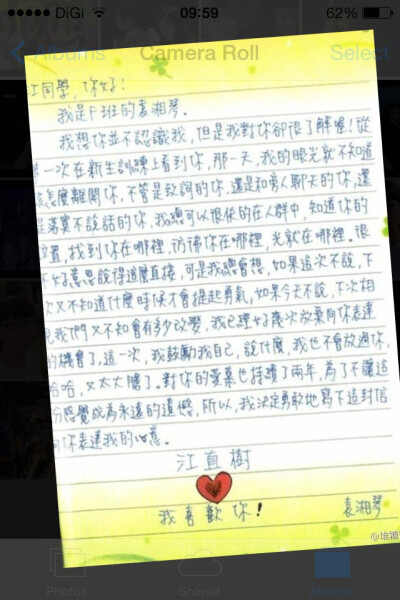 DiGi 09:59 62%
Albums Camera Roll Select
江同學,你好!
我是F班的袁湘琴。
我想你並不認識我,但是我對你卻很了解喔!從
第一次在新生訓練上看到你,那一天,我的眼光就不知道
該怎麼離開你,不管是致詞的你,還是和旁人聊天的你,還
是落寞不說話的你,我總可以很快的在人群中,知道你的
位置,找到你在哪裡,彷彿你在哪裡,光就在哪裡。很
不好意思說得這麼直接,可是我總會想,如果這次不說,下
次又不知道什麼時候才會提起勇氣,如果今天不說,下次相
見我們又不知會有多少改變,我已經好幾次放棄向你表達
的機會了,這一次,我鼓勵我自己,說什麼,我也不會放過你,
哈哈,又太大膽了。對你的愛慕也持續了兩年,為了不讓這
份感覺成為永遠的遺憾,所以,我決定勇敢地寫下這封信
向你表達我的心意。
江直樹
我喜歡你! 袁湘琴
Photos Shared Albums